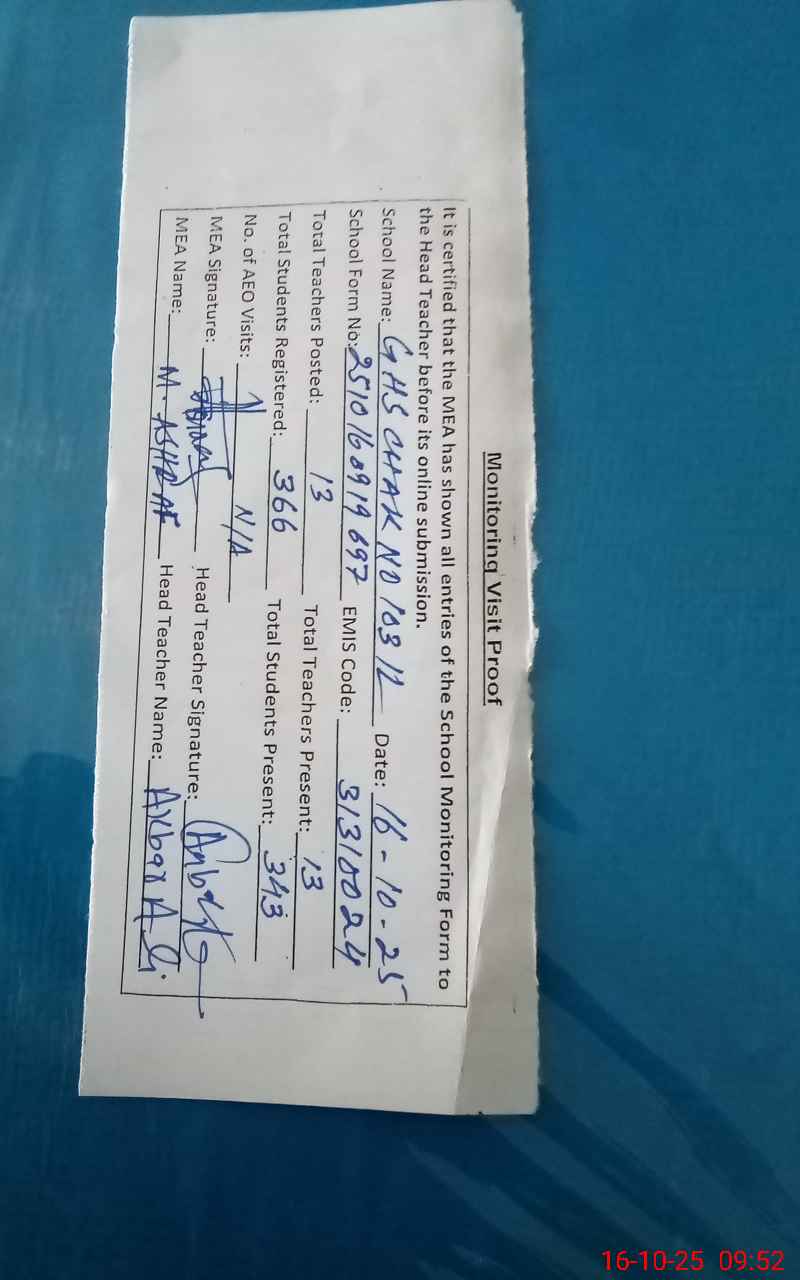 Monitoring Visit Proof
It is certified that the MEA has shown all entries of the School Monitoring Form to
the Head Teacher before its online submission.
School Name: GHS CHAK NO 103 12 Date: 16-10-25
School Form No: 2510160919697 EMIS Code: 31310024
Total Teachers Posted: 13 Total Teachers Present: 13
Total Students Registered: 366 Total Students Present: 343
No. of AEO Visits: N/A
MEA Signature: Head Teacher Signature:
MEA Name: M. ASHRAF Head Teacher Name: Akbar Ali
16-10-25 09:52